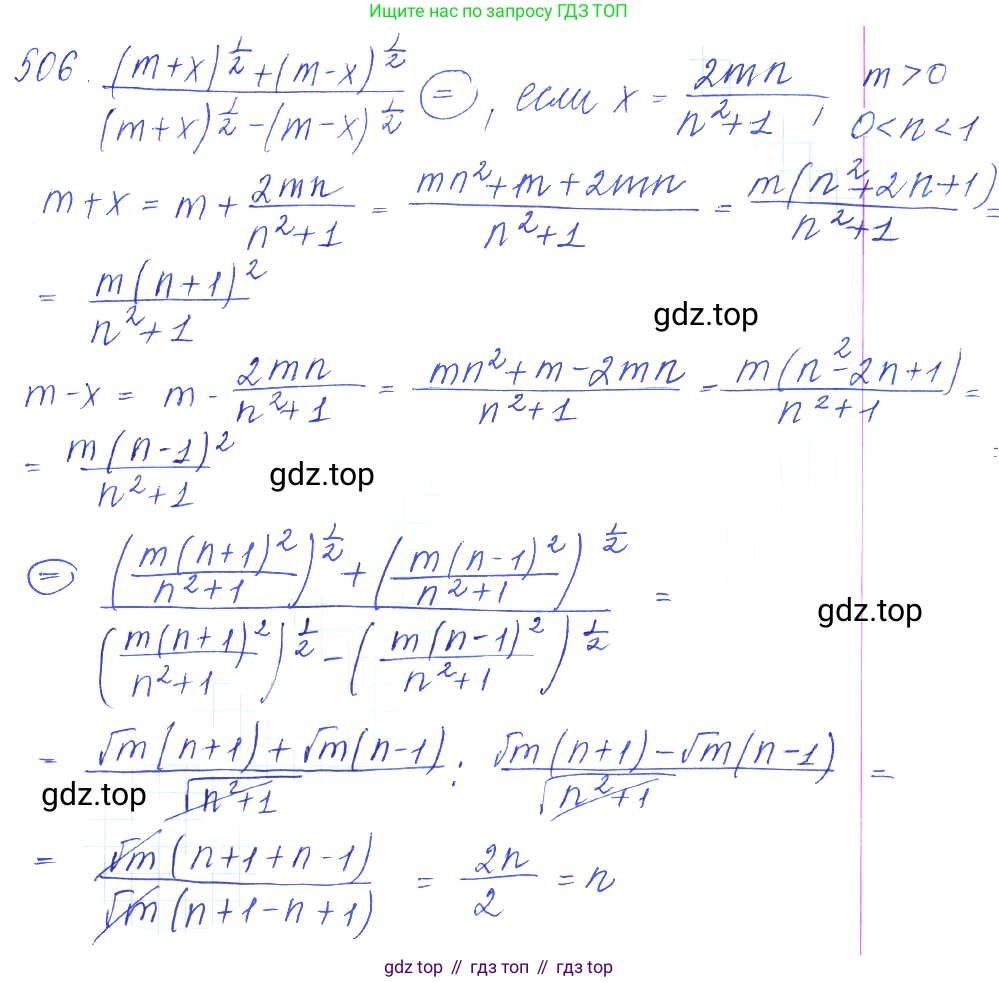 Ищите нас по запросу ГДЗ ТОП
506. ((m+x)^{1/2} + (m-x)^{1/2}) / ((m+x)^{1/2} - (m-x)^{1/2}) ⊜, если x = 2mn / (n²+1), m>0
0<n<1
m+x = m + 2mn/(n²+1) = (mn²+m+2mn)/(n²+1) = m(n²+2n+1)/(n²+1) =
= m(n+1)²/(n²+1)
gdz.top
m-x = m - 2mn/(n²+1) = (mn²+m-2mn)/(n²+1) = m(n²-2n+1)/(n²+1) =
= m(n-1)²/(n²+1) =
gdz.top
⊜ ((m(n+1)²/(n²+1))^{1/2} + (m(n-1)²/(n²+1))^{1/2}) / ((m(n+1)²/(n²+1))^{1/2} - (m(n-1)²/(n²+1))^{1/2}) =
gdz.top
= (√m(n+1)+√m(n-1))/√(n²+1) : (√m(n+1)-√m(n-1))/√(n²+1) =
gdz.top
= √m(n+1+n-1) / √m(n+1-n+1) = 2n/2 = n
gdz top // гдз топ // гдз top